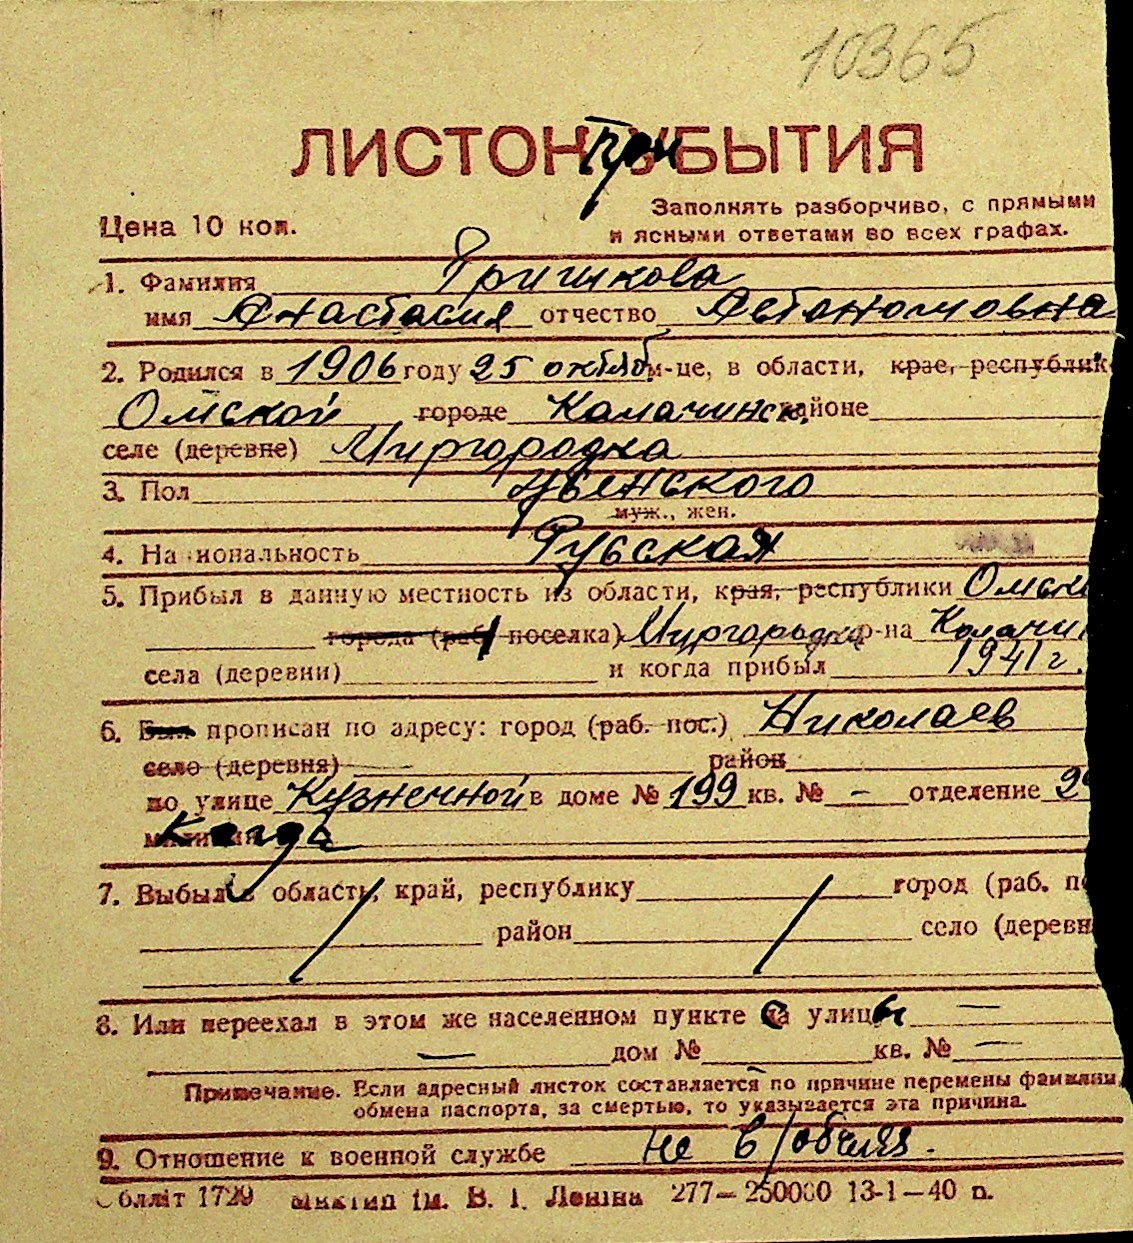 10365
ЛИСТОК При БЫТИЯ
Цена 10 коп.
Заполнять разборчиво, с прямыми
и ясными ответами во всех графах.
1. Фамилия Гришкова
имя Анастасия отчество Автономовна
2. Родился в 1906 году 25 октяб м-це, в области, крае, республик
Омской городе Калачинск, районе
селе (деревне) Миргородка
3. Пол женского
муж., жен.
4. Национальность Русская
5. Прибыл в данную местность из области, края, республики Омск
города (раб. поселка) Миргородка р-на Калачи
села (деревни) и когда прибыл 1941 г.
6. Был прописан по адресу: город (раб. пос.) Николаев
село (деревня) — район
по улице Кузнечной в доме № 199 кв. № — отделение
когда
7. Выбыл в область, край, республику город (раб. п
район село (деревн
8. Или переехал в этом же населенном пункте с улицы —
— дом № кв. № —
Примечание. Если адресный листок составляется по причине перемены фамилии,
обмена паспорта, за смертью, то указывается эта причина.
9. Отношение к военной службе не в/обяз.
Обллiт 1729 iм. В. I. Ленiна 277—250000 13-1—40 п.